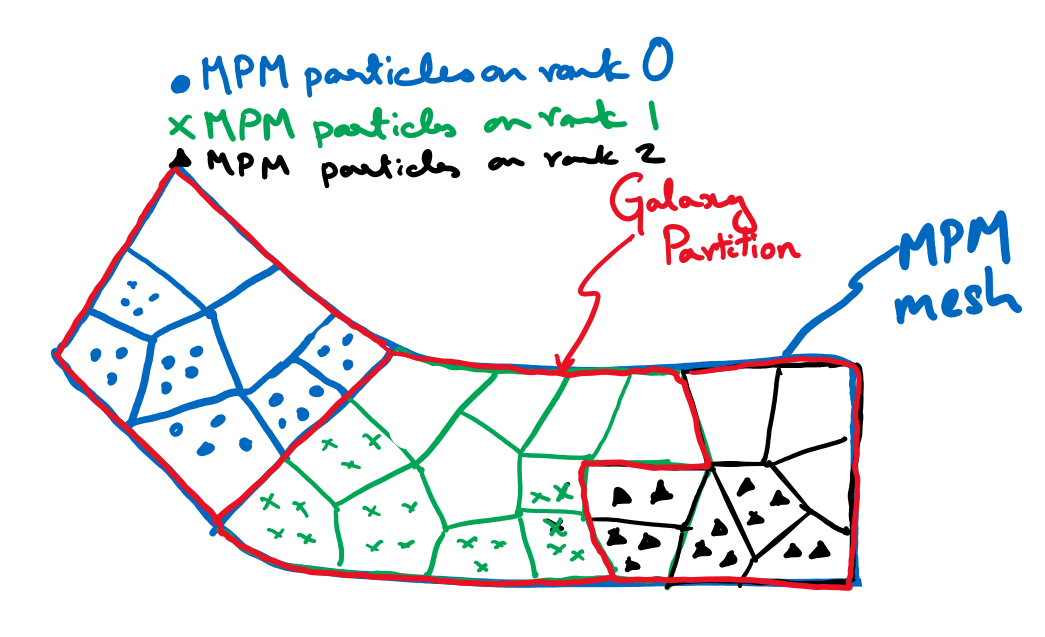 MPM particles on rank 0
MPM particles on rank 1
MPM particles on rank 2
Galaxy
Partition
MPM
mesh